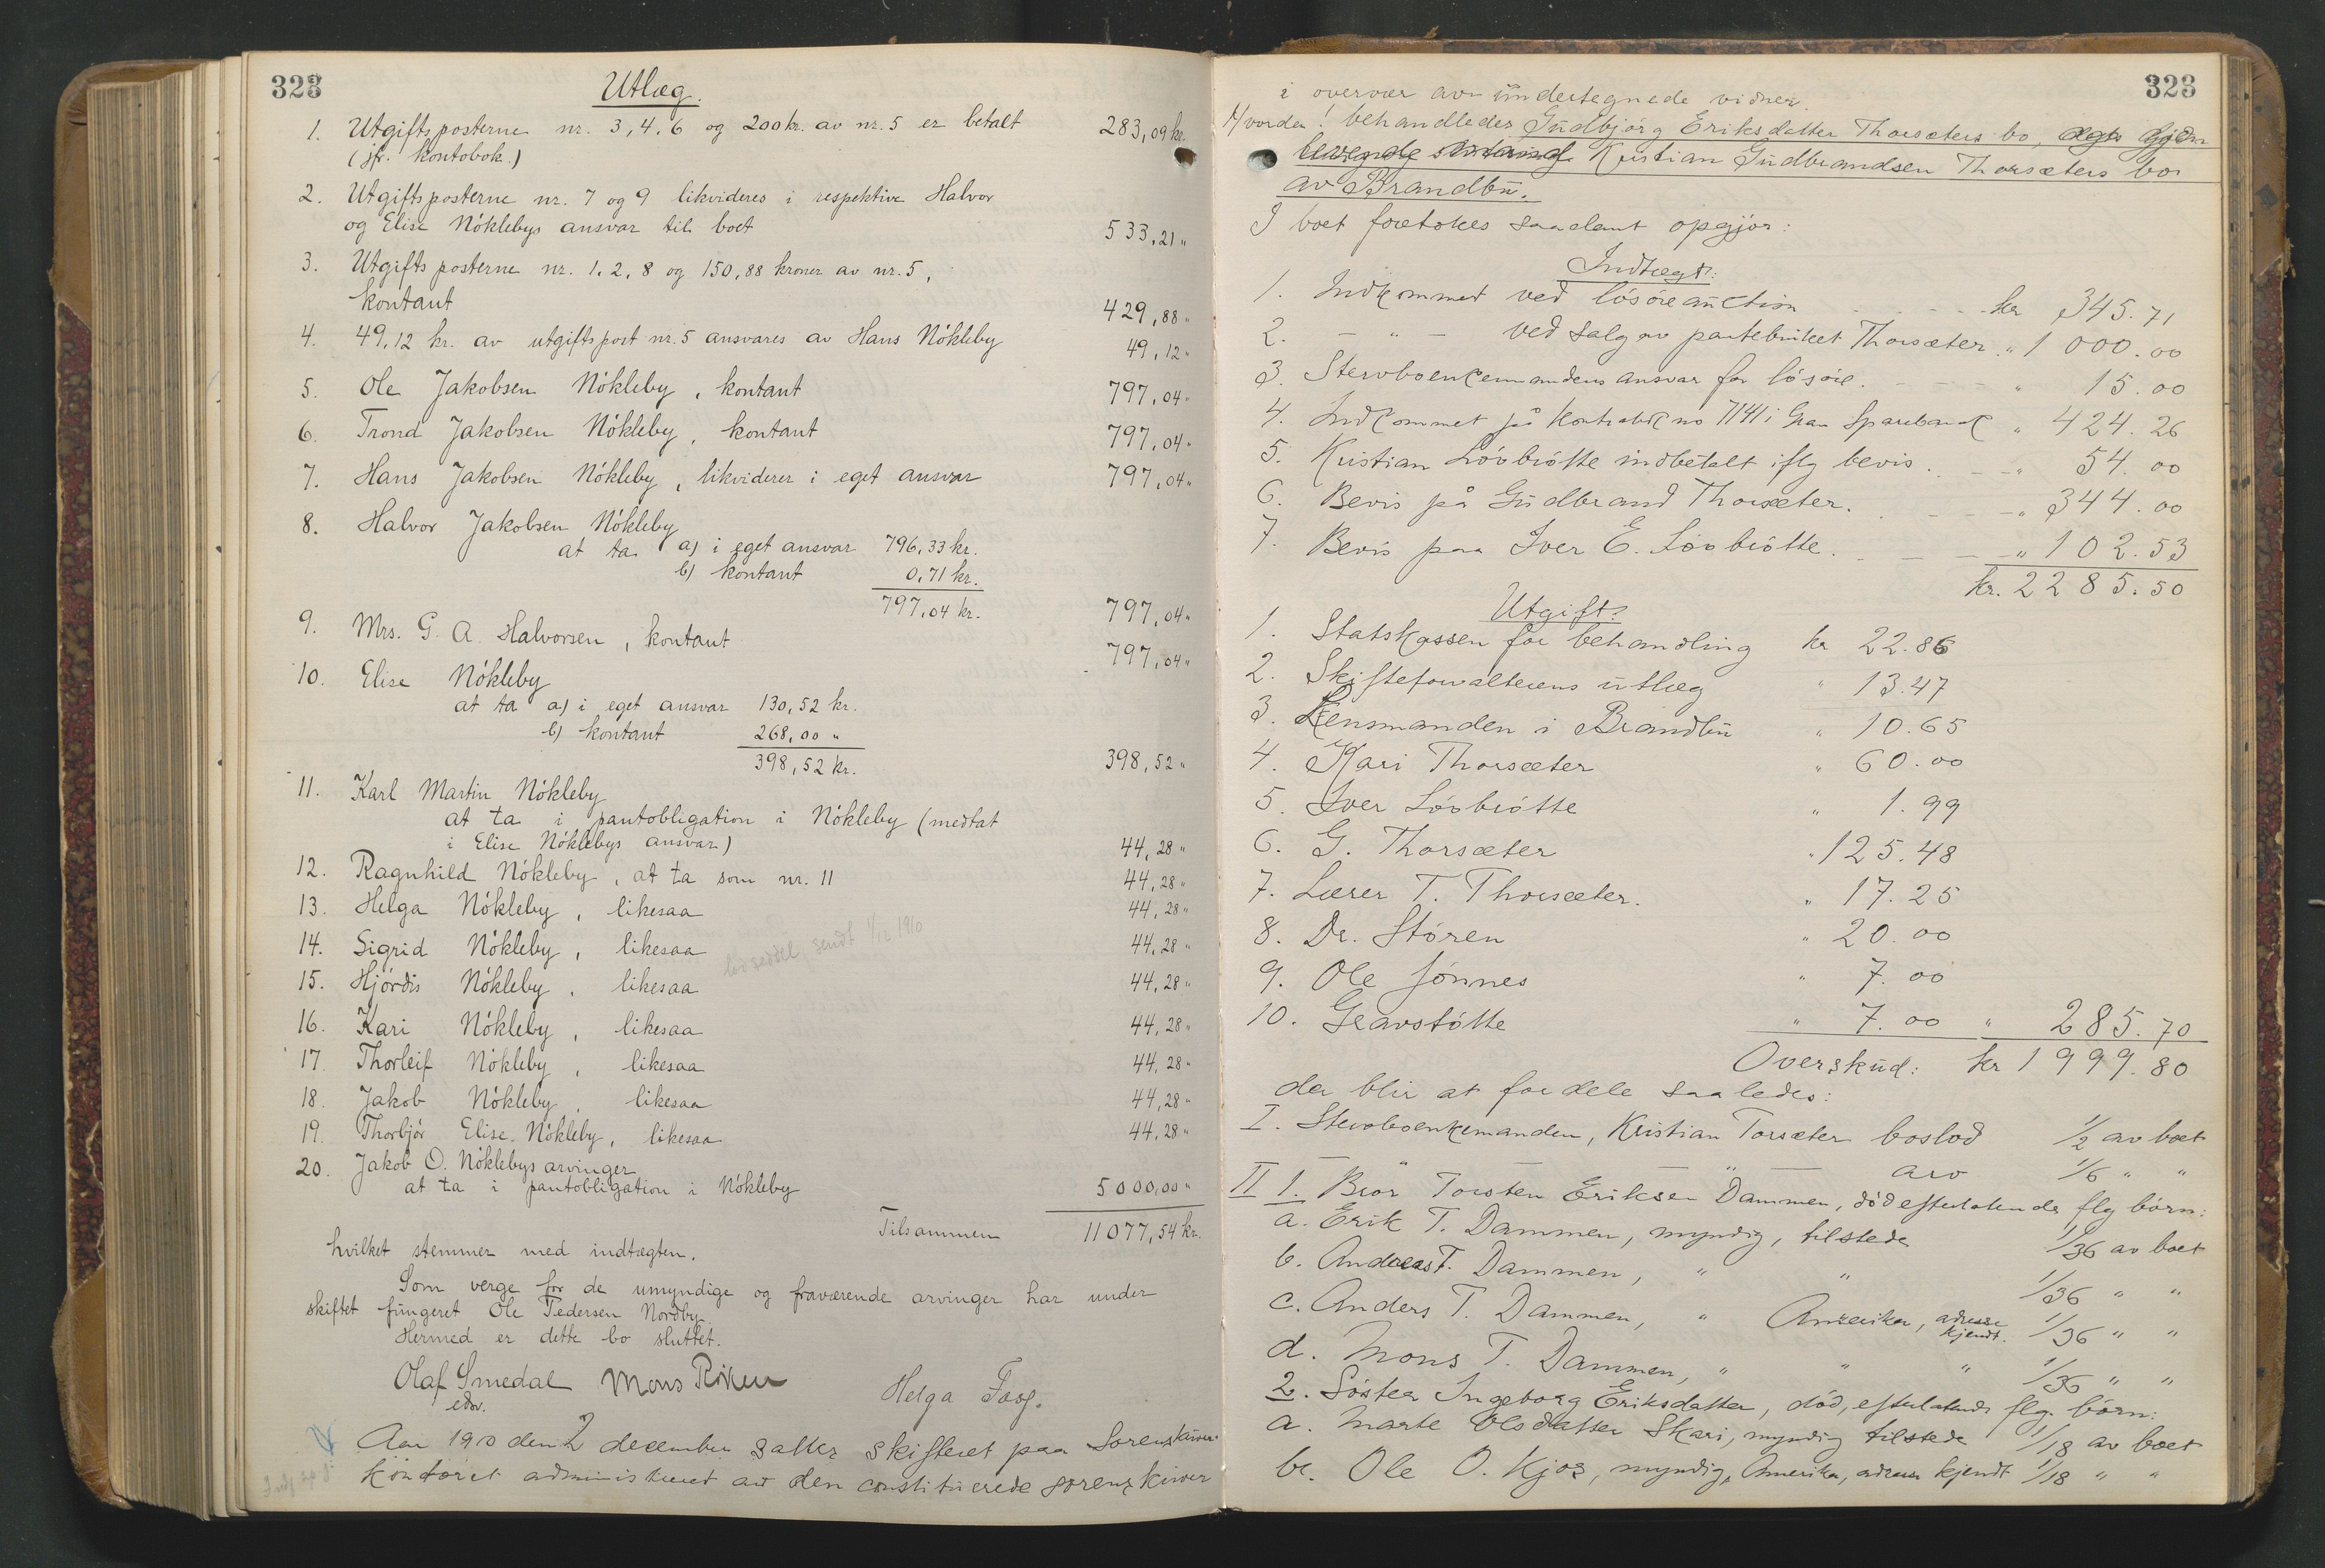 323
Utlæg.
1. Utgiftsposterne nr. 3, 4, 6 og 200 kr. av nr. 5 er betalt 283,09 kr.
(jfr. kontobok.)
2. Utgiftsposterne nr. 7 og 9 likvideres i respektive Halvor
og Elise Nöklebys ansvar til boet 533,21 "
3. Utgiftsposterne nr. 1, 2, 8 og 150,88 kroner av nr. 5,
kontant 429,88 "
4. 49,12 kr. av utgiftspost nr. 5 ansvares av Hans Nökleby 49,12 "
5. Ole Jakobsen Nökleby, kontant 797,04 "
6. Trond Jakobsen Nökleby, kontant 797,04 "
7. Hans Jakobsen Nökleby, likviderer i eget ansvar 797,04 "
8. Halvor Jakobsen Nökleby
at ta a) i eget ansvar 796,33 kr.
b) kontant 0,71 kr.
797,04 kr. 797,04 "
9. Mrs. G. A. Halvorsen, kontant 797,04 "
10. Elise Nökleby
at ta a) i eget ansvar 130,52 kr.
b) kontant 268,00 "
398,52 kr. 398,52 "
11. Karl Martin Nökleby
at ta i pantobligation i Nökleby (medtat
i Elise Nöklebys ansvar) 44,28 "
12. Ragnhild Nökleby, at ta som nr. 11 44,28 "
13. Helga Nökleby, likesaa 44,28 "
14. Sigrid Nökleby, likesaa 44,28 "
sendt 1/12 1910
15. Hjördis Nökleby, likesaa 44,28 "
16. Kari Nökleby, likesaa 44,28 "
17. Thorleif Nökleby, likesaa 44,28 "
18. Jakob Nökleby, likesaa 44,28 "
19. Thorbjör Elise Nökleby, likesaa 44,28 "
20. Jakob O. Nöklebys arvinger
at ta i pantobligation i Nökleby 5000,00 "
Tilsammen 11077,54 kr.
hvilket stemmer med indtægten.
Som verge for de umyndige og fraværende arvinger har under
skiftet fungeret Ole Pedersen Nordby.
Hermed er dette bo sluttet.
Olaf Smedal Mons Röken Helga
edsv.
Aar 1910 den 2 december sattes skifteret paa Sorenskriver-
kontoret administreret av den constituerede sorenskriver
323
i overvær av undertegnede vidner.
Hvorda! behandledes Gudbjörg Eriksdatter Thorsæters bo,
Kristian Gudbrandsen Thorsæters bo
av Brandbu.
I boet foretokes saadant opgjör:
Indtægt:
1. Indkommet ved lösöreauction kr 345.71
2. - " - ved salg av partebruket Thorsæter " 1000.00
3. Stervboenkemandens ansvar for lösöre. " 15.00
4. Indkommet på Kontrabok no 7141 i Gran Sparebank " 424.26
5. Kristian Lövbrötte indbetalt iflg bevis. " 54.00
6. Bevis på Gudbrand Thorsæter. " 344.00
7. Bevis paa Iver E. Lövbrötte. " 102.53
kr. 2285.50
Utgift:
1. Statskassen for behandling kr 22.86
2. Skifteforvalterens utlæg " 13.47
3. Lensmanden i Brandbu " 10.65
4. Kari Thorsæter " 60.00
5. Iver Lövbrötte " 1.99
6. G. Thorsæter " 125.48
7. Lærer T. Thorsæter. " 17.25
8. Dr. Stören " 20.00
9. Ole Jönnes " 7.00
10. Gravstötte " 7.00 " 285.70
Overskud: kr 1999.80
der blir at fordele saaledes:
I. Stervboenkemanden, Kristian Torsæter boslod 1/2 av boet
— " — " — arv 1/6 " "
II 1. Bror Torsten Eriksen Dammen, död efterlatende flg börn:
a. Erik T. Dammen, myndig, tilstede 1/36 av boet
b. Andreas T. Dammen, " " 1/36 " "
c. Anders T. Dammen, " Amerika, adresse kjendt. 1/36 " "
d. Mons T. Dammen, " " " 1/36 " "
2. Söster Ingeborg Eriksdatter, död, efterlatende flg. börn:
a. Marte Olsdatter Skari, myndig tilstede 1/18 av boet
b. Ole O. Kjos, myndig, Amerika, adresse kjendt 1/18 " "